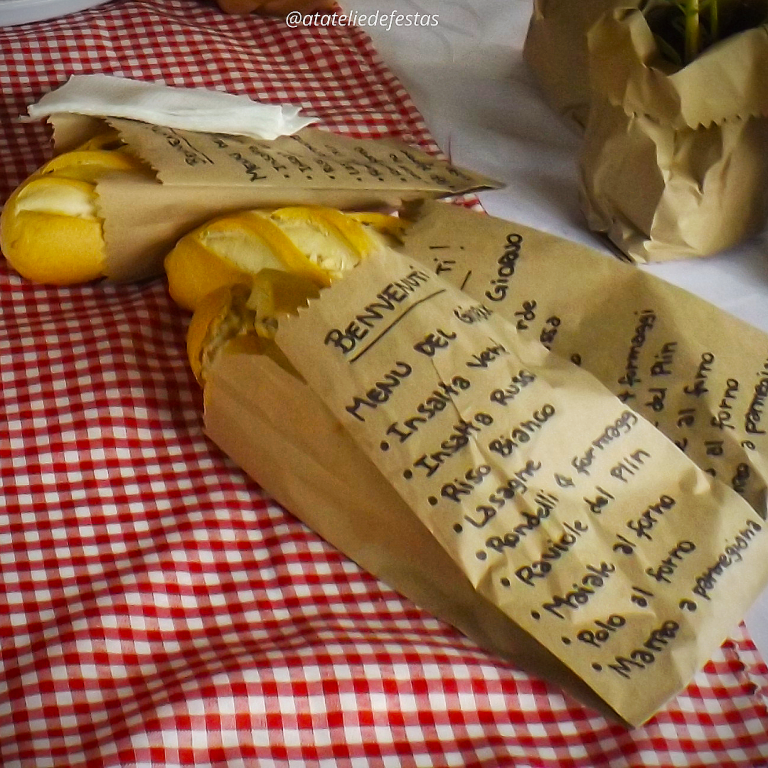 @atateliedefestas
BENVENUTI!
MENU DEL GIORNO
• Insalta Verde
• Insalta Russa
• Riso Bianco
• Lasagne
• Rondelli 4 formaggi
• Raviole del Plin
• Maiale al forno
• Polo al forno
• Manzo a parmegiana
MENU
GIORNO
rde
ssa
o
4 formaggi
del Plin
e al forno
o al forno
o a parmegia